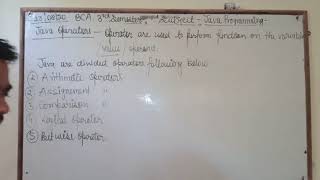 BCA 3rd Semester, Subject - Java Programming -
Java operators - Operator are used to perform function on the variable
value / operand.
Java are divided operators following below
① Arithmatic operators
② Assignment "
③ Comparison "
④ Logical operator
⑤ Bit wise operator